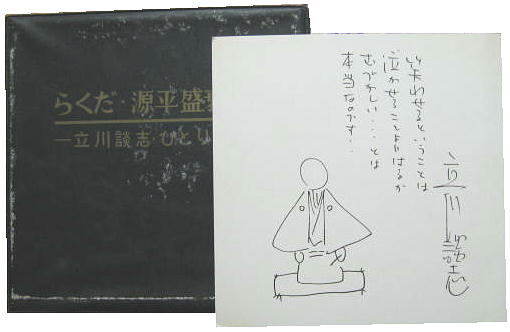 らくだ・源平盛
―立川談志ひとり
笑わせるということは
泣かせることよりはるか
むづかしい・・・とは
本当なのです・・
立川談志